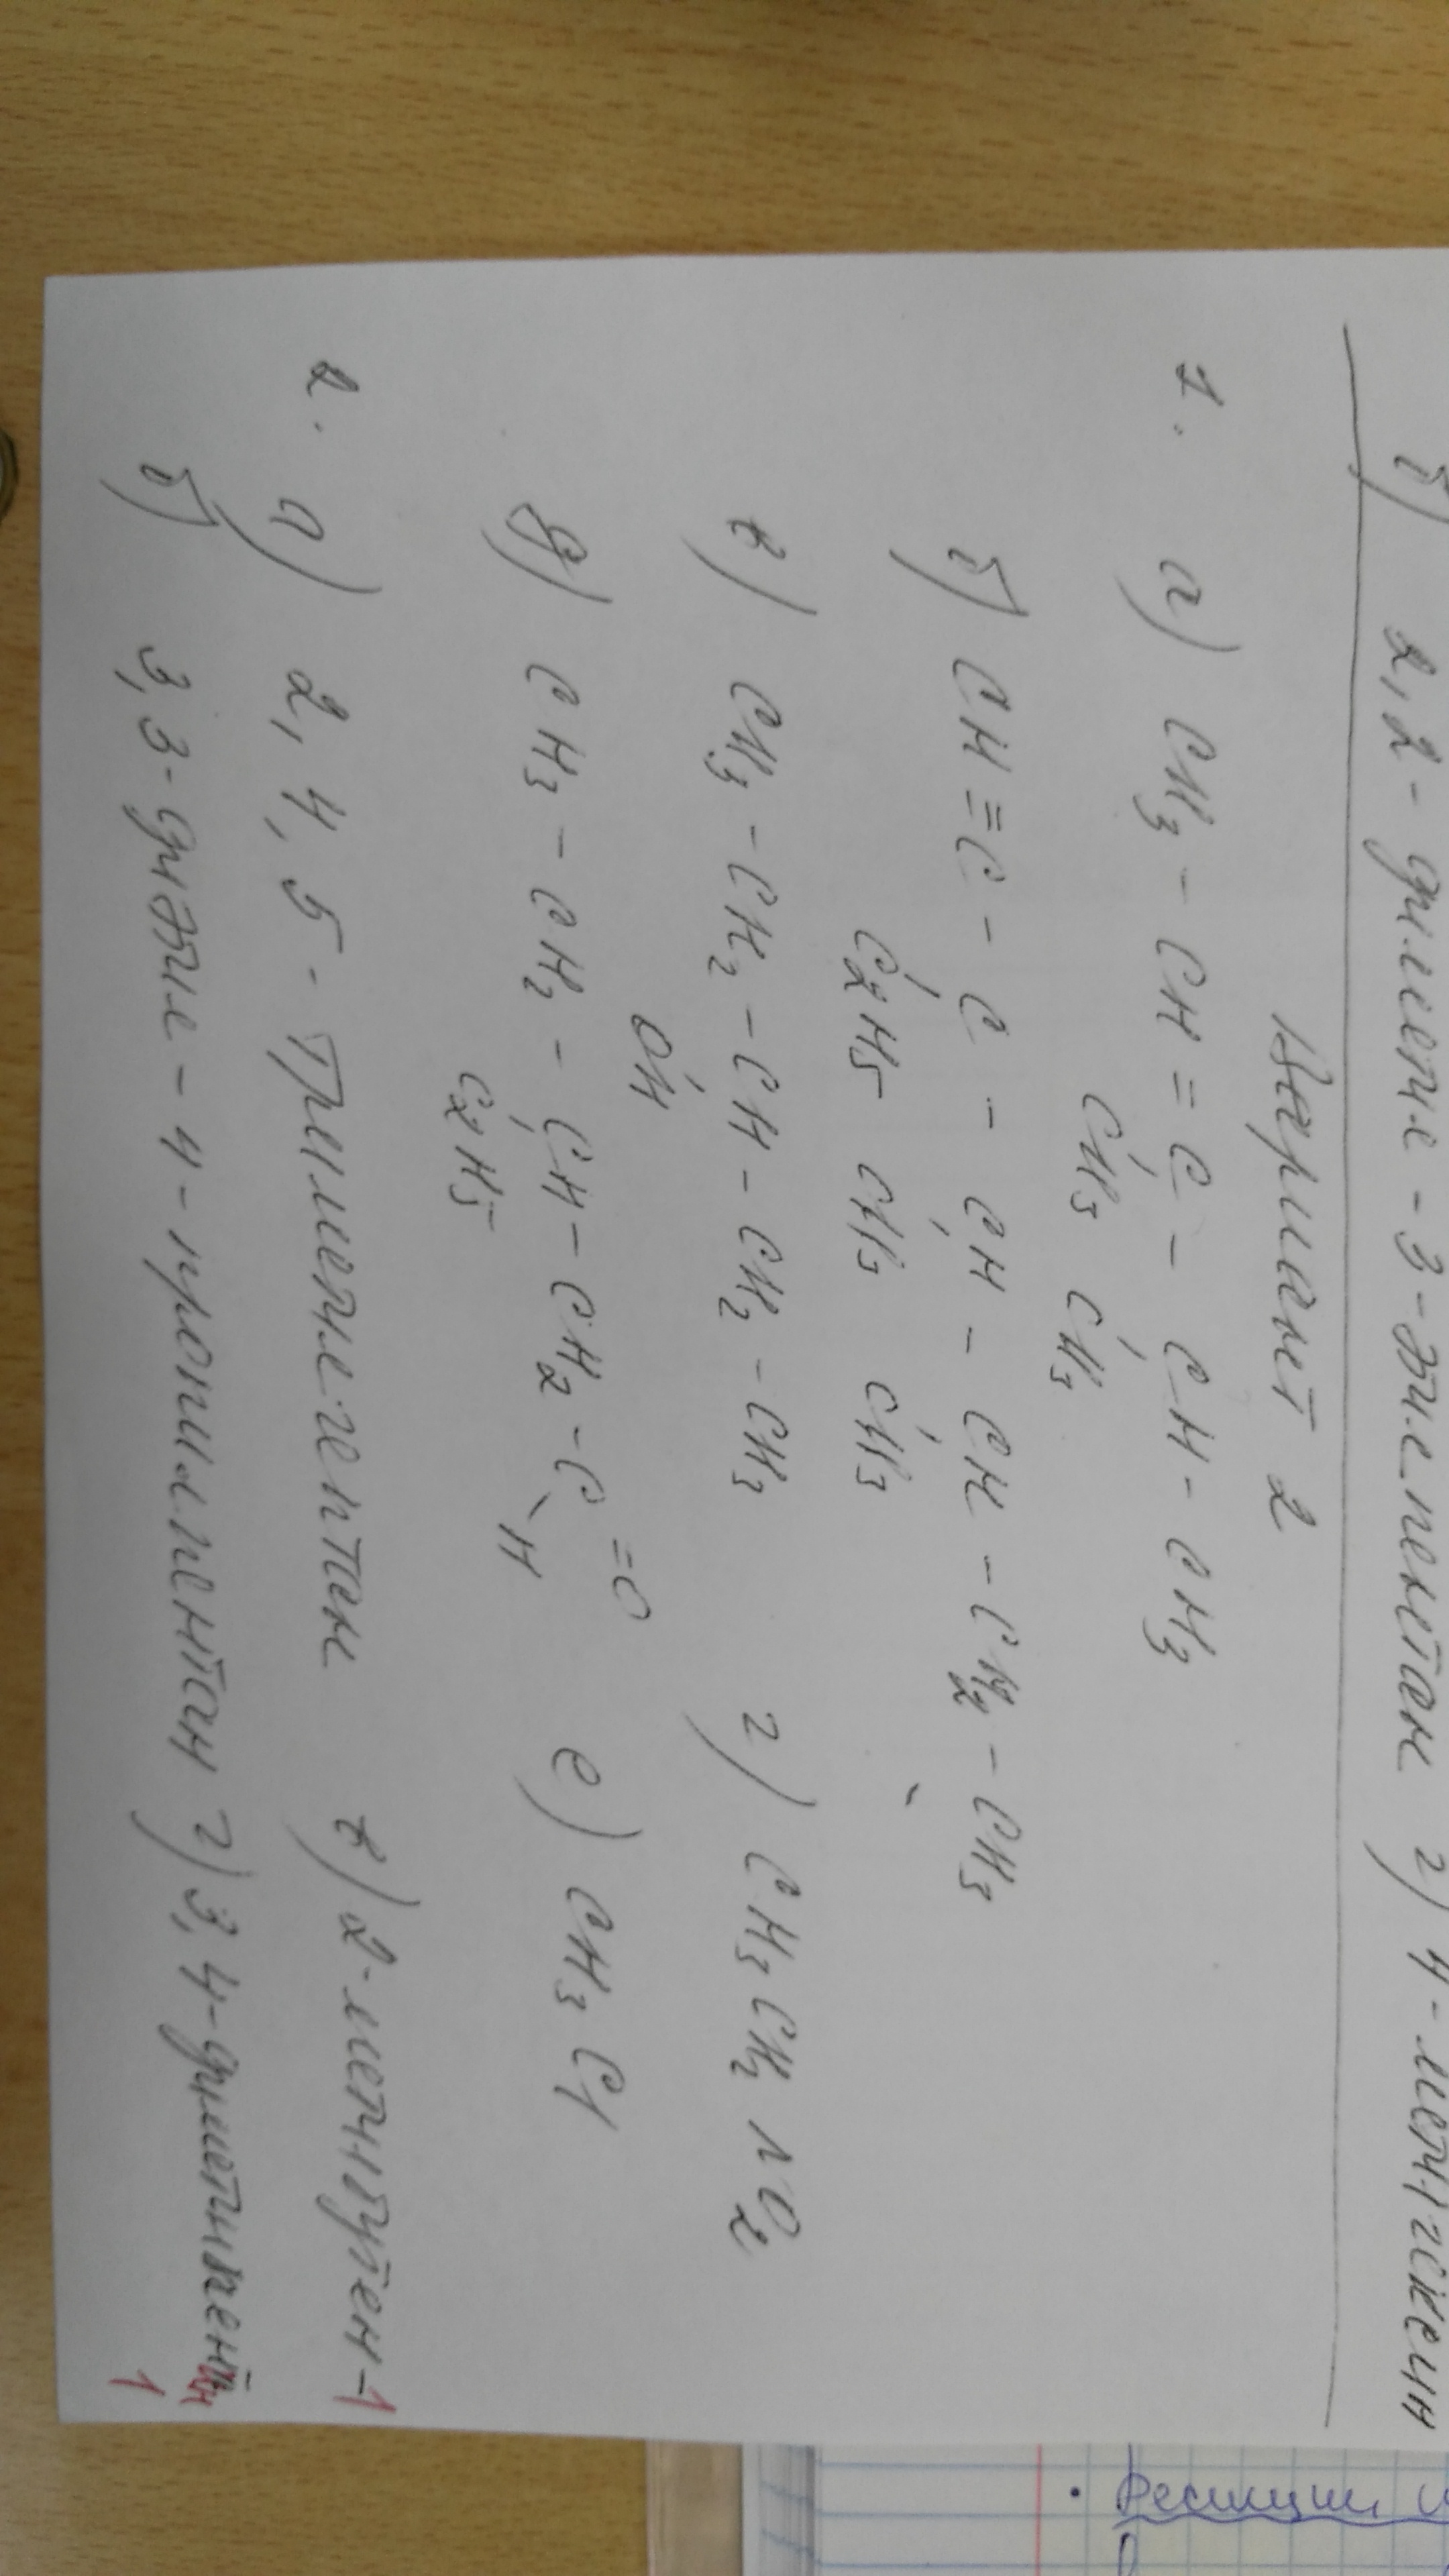 б) 2,2-диметил-3-этилпентан г) 4-метилгексин
Вариант 2
CH3 CH3
1. а) CH3 - CH = C - CH - CH3
б) CH ≡ C - C - CH - CH - CH2 - CH3
C2H5 CH3 CH3
в) CH3 - CH2 - CH - CH2 - CH3 г) CH3CH2NO2
OH
=O
д) CH3 - CH2 - CH - CH2 - C е) CH3Cl
H
C2H5
2. а) 2,4,5-триметилгептан в) 2-метилбутен-1
б) 3,3-диэтил-4-пропилпентан г) 3,4-диметилпентин
1
• Реакции